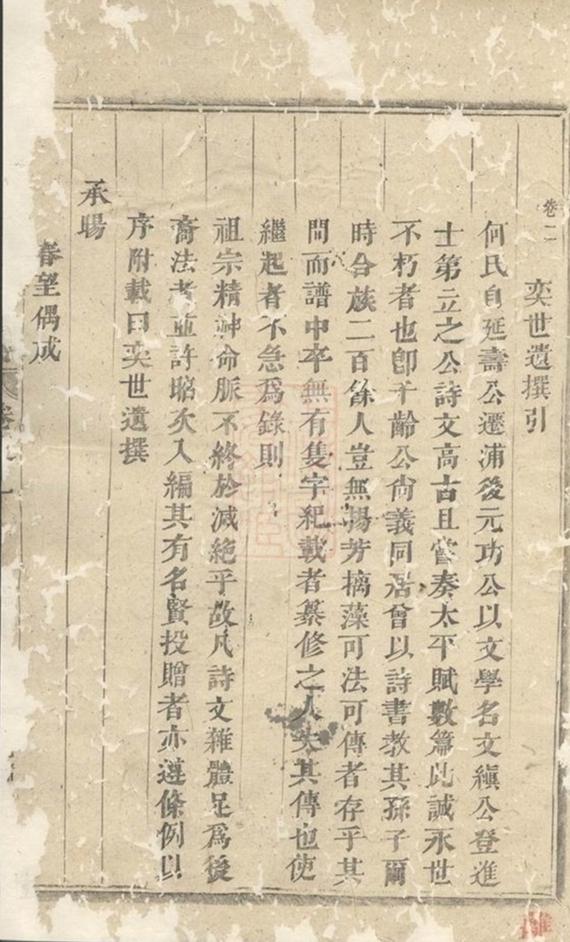 卷二
奕世遺撰引
何氏自延壽公遷浦後元功公以文學名文縝公登進
士第立之公詩文高古且嘗奏太平賦數篇此誠永世
不朽者也卽千齡公尙義同居曾以詩書教其孫子爾
時合族二百餘人豈無揚芳摛藻可法可傳者存乎其
間而譜中卒無有隻字紀載者纂修之人失其傳也使
繼起者不急爲錄則
祖宗精神命脈不終於滅絕乎故凡詩文雜體足爲後
裔法者並許昭次入編其有名賢投贈者亦遵條例以
序附載曰奕世遺撰
承暘
春望偶成
卷